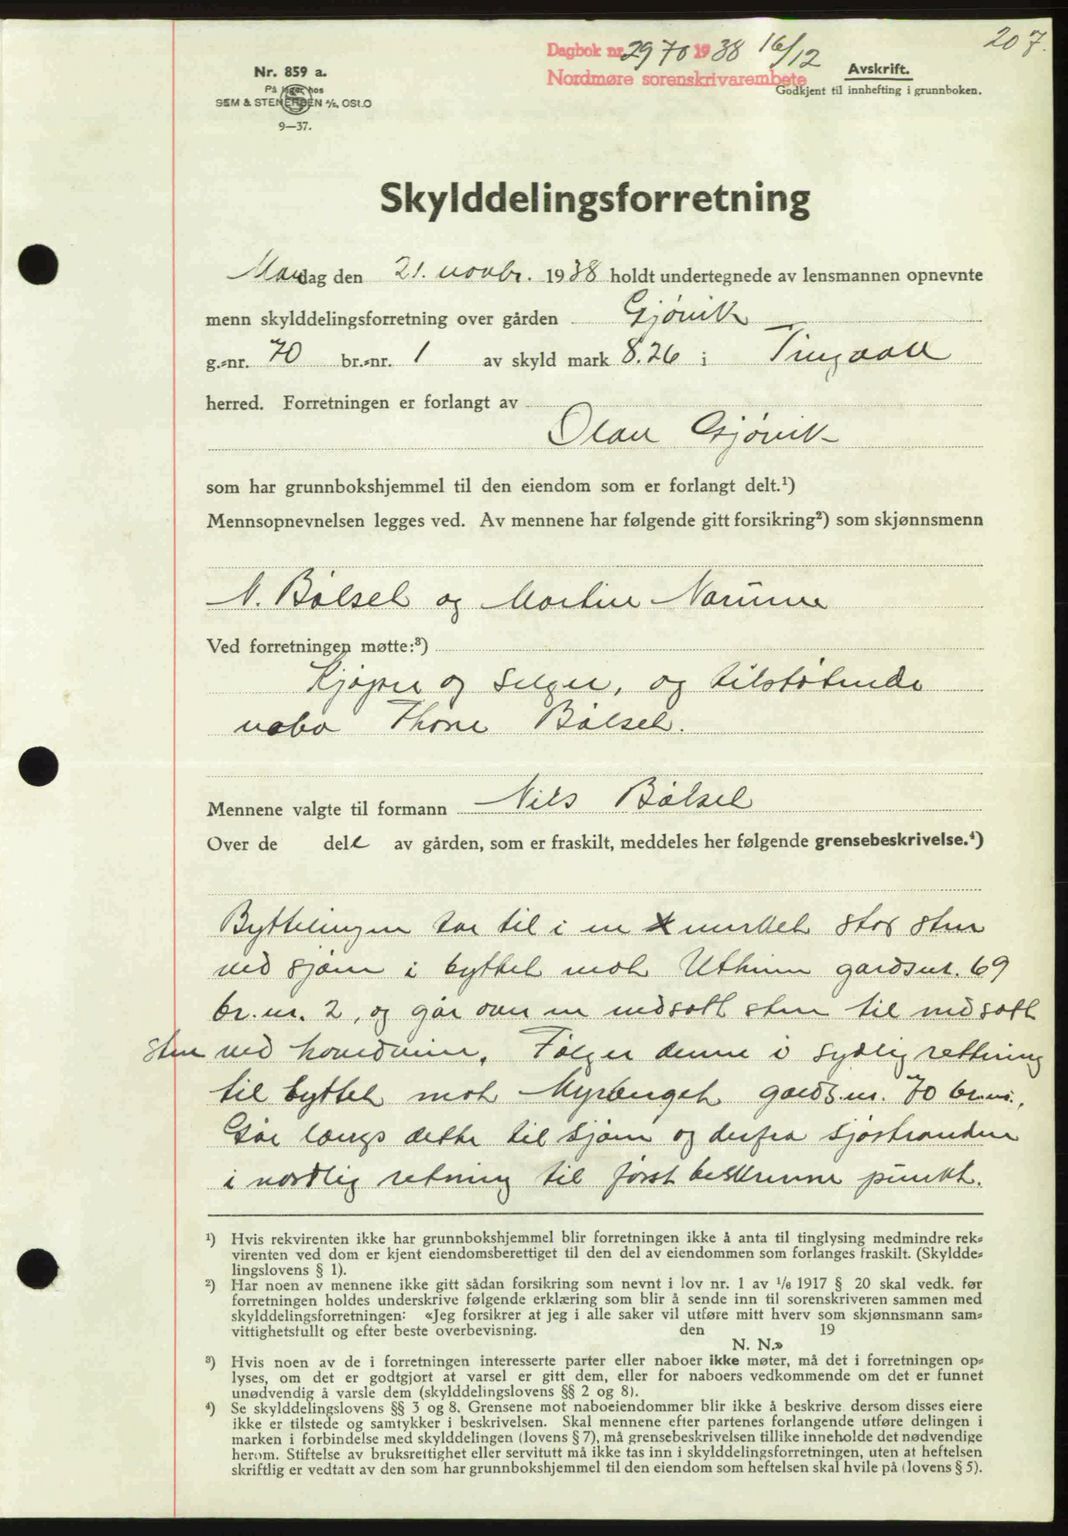 207.
Dagbok nr. 2970 1938 16/12
Nordmøre sorenskrivarembete
Avskrift.
Godkjent til innhefting i grunnboken.
Nr. 859 a.
På lager hos
SEM & STENERSEN A/S, OSLO
9—37.
Skylddelingsforretning
Mandag den 21. novbr. 1938 holdt undertegnede av lensmannen opnevnte
menn skylddelingsforretning over gården Gjøvik
g.-nr. 70 br.-nr. 1 av skyld mark 8.26 i Tingvoll
herred. Forretningen er forlangt av
Olav Gjøvik
som har grunnbokshjemmel til den eiendom som er forlangt delt.¹)
Mennsopnevnelsen legges ved. Av mennene har følgende gitt forsikring²) som skjønnsmenn
N. Bølset og Martin
Ved forretningen møtte:³)
Kjøper og selger, og tilstøtende
nabo Thore Bølset.
Mennene valgte til formann Nils Bølset
Over de dele av gården, som er fraskilt, meddeles her følgende grensebeskrivelse.⁴)
Byttelinjen tar til i en x merket stor sten
ved sjøen i byttet mot Utheim gardsnr. 69
br.nr. 2, og går over en nedsatt sten til nedsatt
sten ved hovedveien. Følger denne i sydlig rettning
til byttet mot Myrenget gards.nr. 70 br.nr.,
Går langs dette til sjøen og derfra sjøstranden
i nordlig retning til først beskrevne punkt.
¹) Hvis rekvirenten ikke har grunnbokshjemmel blir forretningen ikke å anta til tinglysing medmindre rek-
virenten ved dom er kjent eiendomsberettiget til den del av eiendommen som forlanges fraskilt. (Skyldde-
lingslovens § 1).
²) Har noen av mennene ikke gitt sådan forsikring som nevnt i lov nr. 1 av 1/6 1917 § 20 skal vedk. før
forretningen holdes underskrive følgende erklæring som blir å sende inn til sorenskriveren sammen med
skylddelingsforretningen: «Jeg forsikrer at jeg i alle saker vil utføre mitt hverv som skjønnsmann sam-
vittighetsfullt og efter beste overbevisning. den 19
N. N.»
³) Hvis noen av de i forretningen interesserte parter eller naboer ikke møter, må det i forretningen op-
lyses, om det er godtgjort at varsel er gitt dem, eller for naboers vedkommende om det er funnet
unødvendig å varsle dem (skylddelingslovens §§ 2 og 8).
⁴) Se skylddelingslovens §§ 3 og 8. Grensene mot naboeiendommer blir ikke å beskrive, dersom disses eiere
ikke er tilstede og samtykker i beskrivelsen. Skal mennene efter partenes forlangende utføre delingen i
marken i forbindelse med skylddelingen (lovens § 7), må grensebeskrivelsen tillike inneholde det nødvendige
herom. Stiftelse av bruksrettighet eller servitutt må ikke tas inn i skylddelingsforretningen, uten at heftelsen
skriftlig er vedtatt av den som har grunnbokshjemmel til den eiendom som heftelsen skal hvile på (lovens § 5).